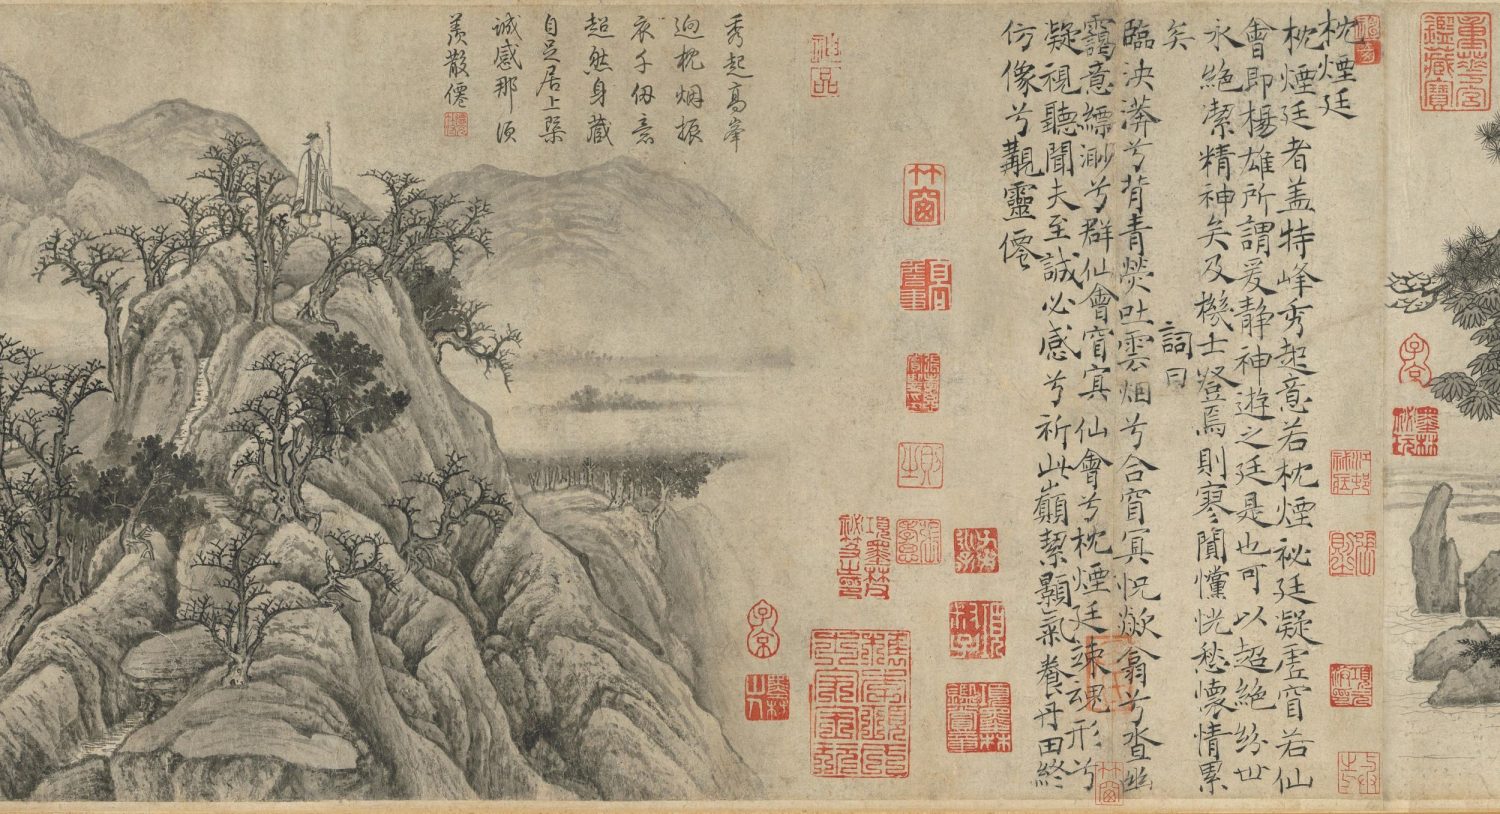 重華宮
鑑藏寶
枕煙廷
枕煙廷者盖特峰秀起意若枕煙祕廷凝虛窅若仙
會即楊雄所謂爰靜神遊之廷是也可以超絶紛世
永絶潔精神矣及機士登焉則寒閴戃恍愁懷情累
矣
詞曰
臨泱漭兮背青熒吐雲烟兮合窅冥怳欻翕兮沓幽
靄意縹渺兮群仙會窅冥仙會兮枕煙廷竦魂形兮
凝視聽聞夫至誠必感兮祈此巔絜顥氣養丹田終
仿像兮覯靈僊
竹窗
子京
神品
秀起高峯
迥枕烟振
衣千仞意
超然身藏
自足居上槩
誠感那須
羡散僊